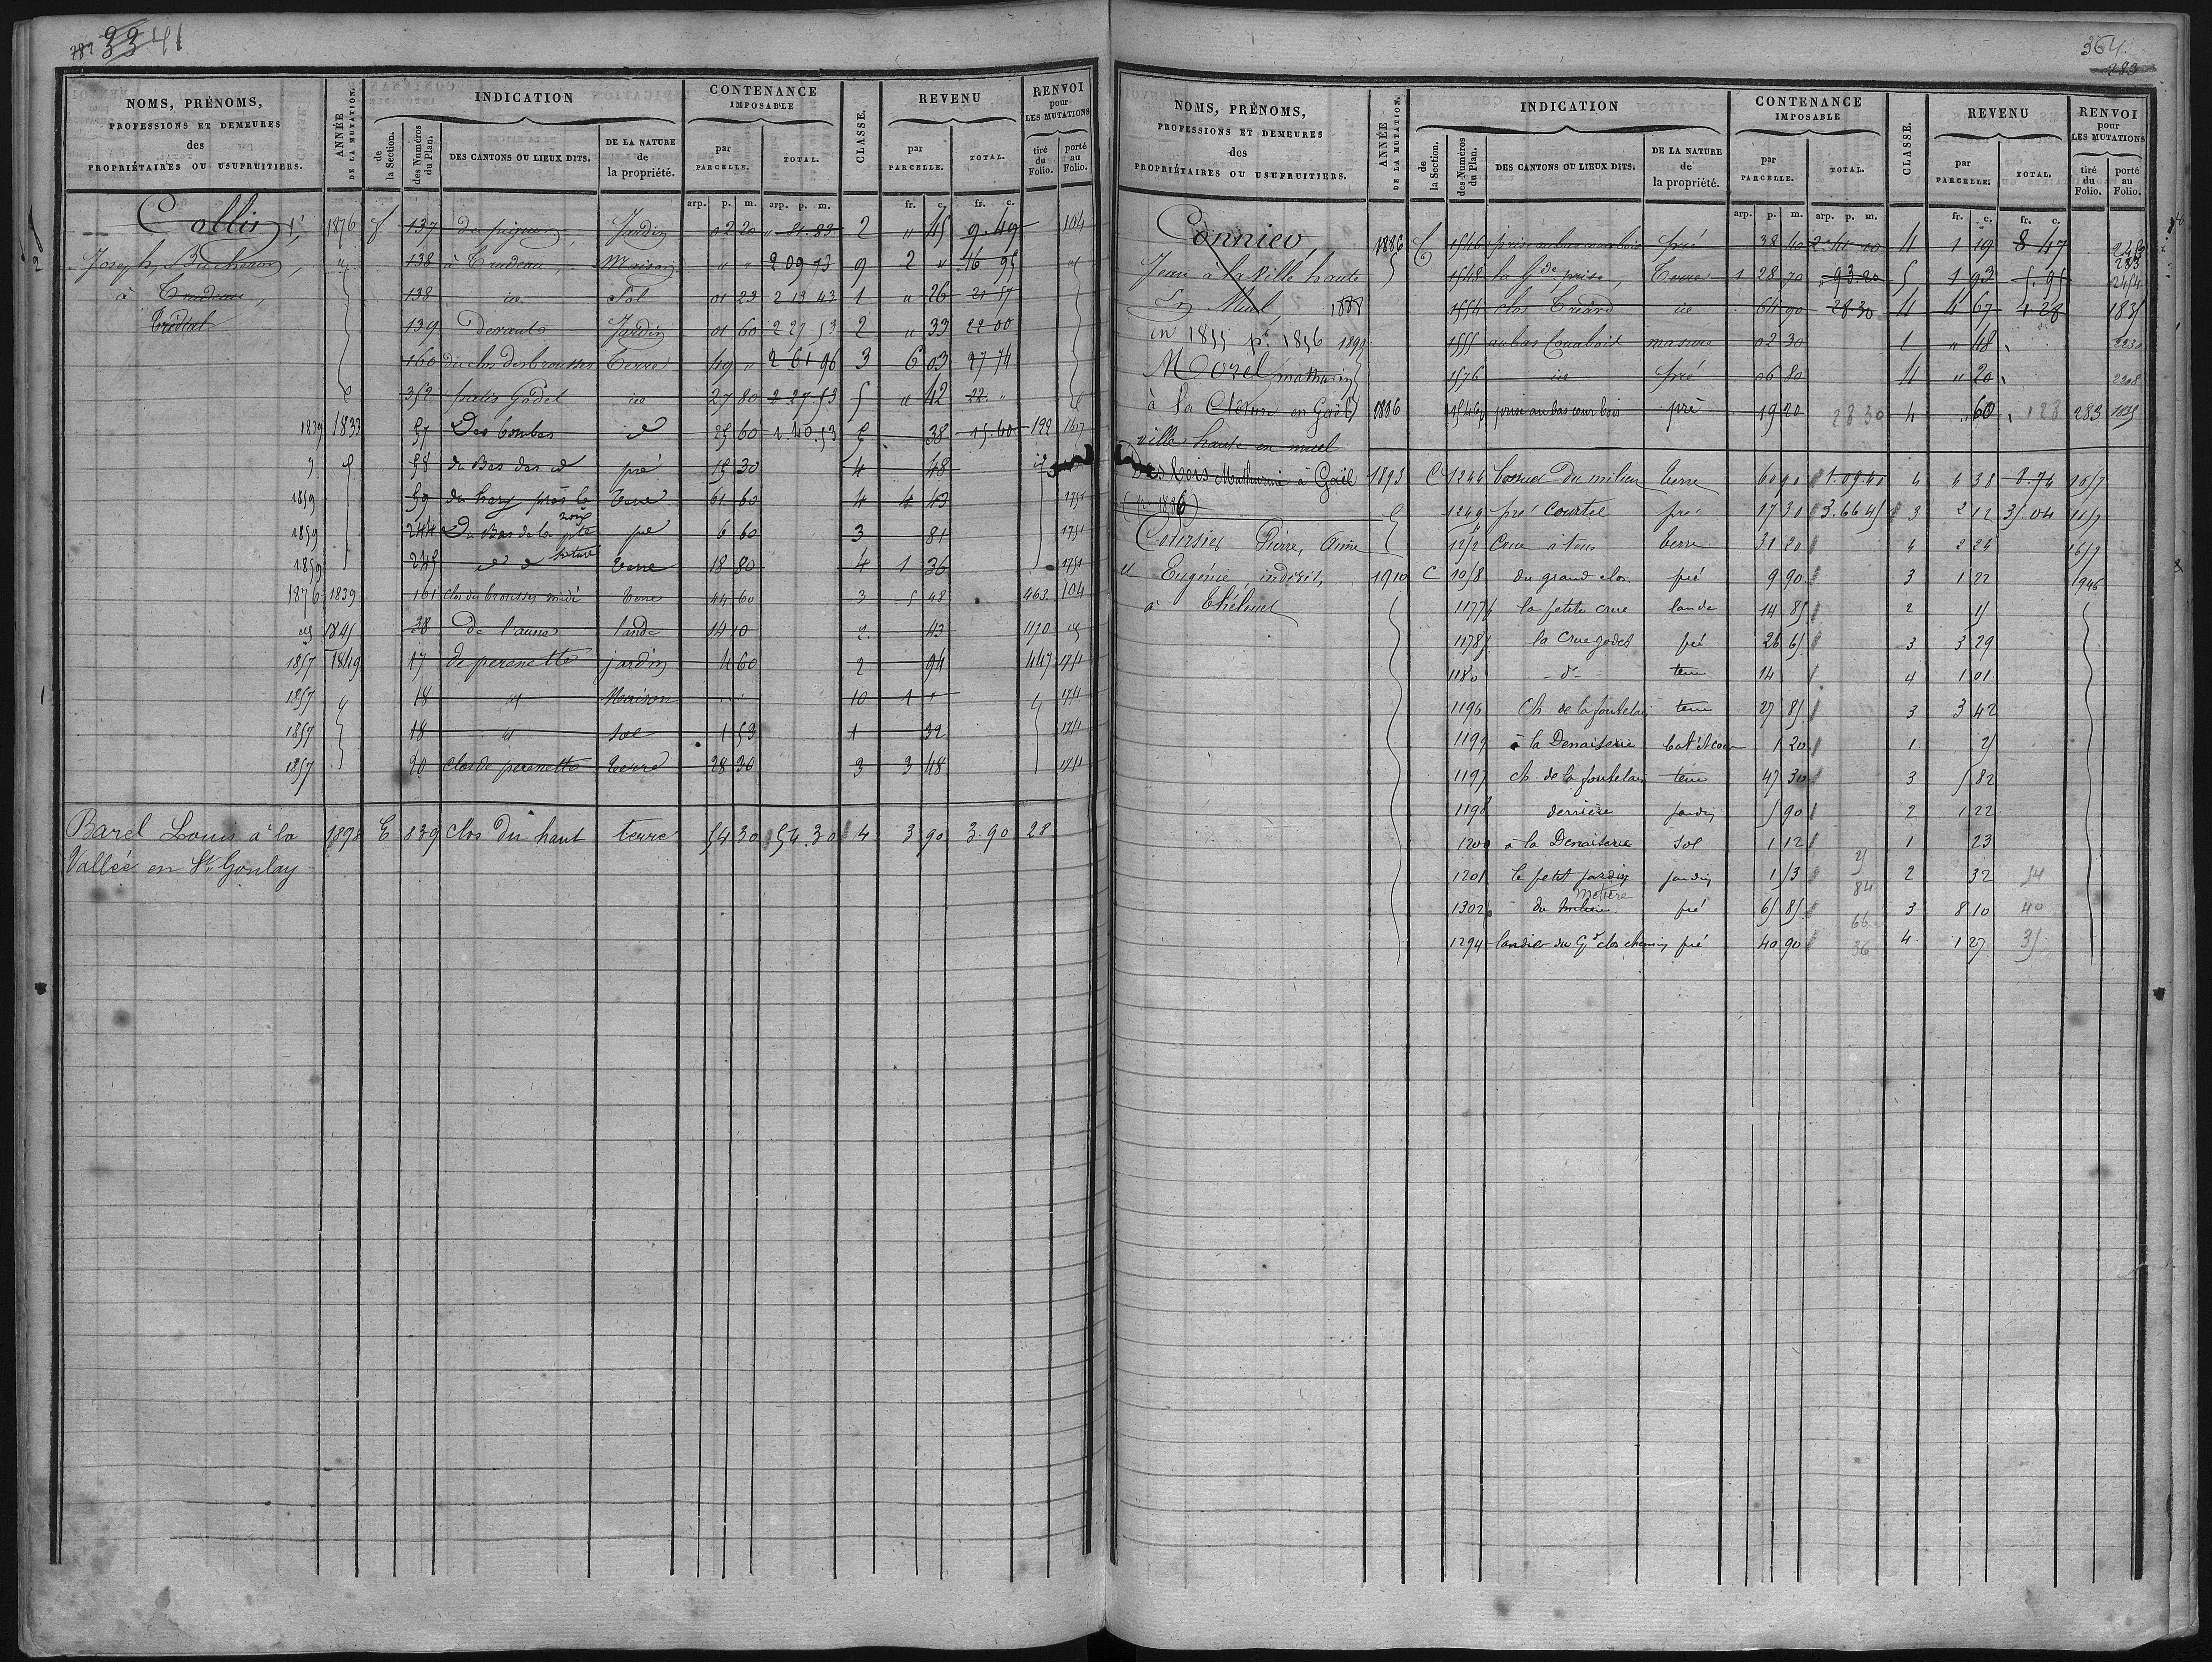 282 33 41
NOMS, PRÉNOMS,
PROFESSIONS ET DEMEURES
des
PROPRIÉTAIRES OU USUFRUITIERS.
ANNÉE
DE LA MUTATION.
INDICATION
de
la Section.
des Numéros
du Plan.
DES CANTONS OU LIEUX DITS.
DE LA NATURE
de
la propriété.
CONTENANCE
IMPOSABLE
par
PARCELLE.
TOTAL.
CLASSE.
REVENU
par
PARCELLE.
TOTAL.
RENVOI
pour
LES MUTATIONS
tiré
du
Folio.
porté
au
Folio.
arp. p. m. arp. p. m. fr. c. fr. c.
Collis 1876 137 du pignon Jardin 02 20 2 " 45 9.49 104
Joseph, Bucheron, 138 à Trudeau, Maison " " 2 09 73 9 2 " 16 95
à Trudeau, 138 id Sol 01 23 2 13 43 1 " 26 21 57
Trédéal 139 devant Jardin 01 60 2 27 53 2 " 33 22 00
160 du clos des brousses Terre 49 " 2 61 96 3 6 03 27 74
352 patis Godel id 27 80 2 27.53 5 " 42 22. "
1839 1833 57 Des bombes id 25 60 1 40.53 5 38 15.40 199 1617
58 du Bas des id pré 15 30 4 48
1859 59 du hary près la terre 61 60 4 4 43 1751
1859 244 Du Bas de la pte pré 6 60 3 81 1751
1859 245 id terre 18 80 4 1 36 1751
1876 1839 161 clos des brousses midi terre 44 60 3 5 48 463 104
1845 38 De l'aune lande 14 10 2 43 1170
1857 1849 17 de perenette jardin 4 60 2 94 447 1711
1857 18 id Maison 10 1 " 1711
1857 18 id Sol 1 53 1 32 1711
1857 20 clos de perenette terre 28 30 3 3 48 1711
Barel Louis à la 1898 E 839 clos du haut terre 54 30 54.30 4 3 90 3.90 28
Vallée en St. Gonlay
364
283
NOMS, PRÉNOMS,
PROFESSIONS ET DEMEURES
des
PROPRIÉTAIRES OU USUFRUITIERS.
ANNÉE
DE LA MUTATION.
INDICATION
de
la Section.
des Numéros
du Plan.
DES CANTONS OU LIEUX DITS.
DE LA NATURE
de
la propriété.
CONTENANCE
IMPOSABLE
par
PARCELLE.
TOTAL.
CLASSE.
REVENU
par
PARCELLE.
TOTAL.
RENVOI
pour
LES MUTATIONS
tiré
du
Folio.
porté
au
Folio.
arp. p. m. arp. p. m. fr. c. fr. c.
1886 1546 pré 38 40 4 1 19 8 47 283
Jean à la Ville haute 1548 la Gde prise, Terre 1 28 70 93 20 5 1 93 5.95
En Muel, 1888 1554 clos Tréard id 64 90 28.30 4 4 67 1 28 1835
in 1855 pr. 1856 1899 1555 masure 02 30 1 " 48 2230
Morel Mathurin 1576 id pré 06 80 4 " 20 2208
à la Cloture en Gaël 1886 1546p prise au bas cour bois pré 19 20 28 30 4 60 128 283
ville haute en muel
Des bois Mathurin à Gaël 1893 C 1244 du milieu terre 60 90 1.09.40 4 4 38 8.74 1057
(n. 1886) 1249 pré Courtel pré 17 30 3.66 45 3 2 12 35.04 1157
Coursier Pierre, Aimé terre 31 20 4 2 24 1657
et Eugénie, indivis, 1910 C 1058 du grand clos pré 9 90 3 1 22 1946
à Thélouet 1177 la petite crue lande 14 85 2 15
1178 la Crue godel pré 26 65 3 3 29
1180 d° terre 14 4 1 01
1196 Ch. de la fontelais terre 27 85 3 3 42
1199 à la Denaiserie bat. et cour 1 20 1 25
1197 ch. de la fontelais terre 47 30 3 5 82
1198 derrière jardin 5 90 2 1 22
1200 à la Denaiserie Sol 1 12 1 23
1201 le petit jardin jardin 1 53 25 84 2 32 54
1302 du milieu Motière pré 65 85 66 3 8 10 40
1294 landier du Gd clos chemin pré 40 90 36 4 1 27 35